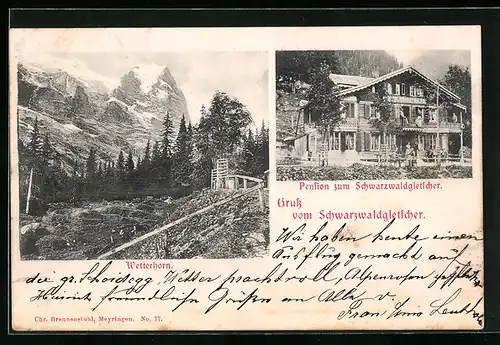 Pension zum Schwarzwaldgletscher.
Gruß
vom Schwarzwaldgletscher.
Wetterhorn.
Wir haben heute einen
Ausflug gemacht auf
die gr. Scheidegg, Wetter prachtvoll, Alpenrosen gepflückt
Hiemit freundliche Grüße an Alle v.
Frau
Chr. Brennenstuhl, Meyringen. No. 77.